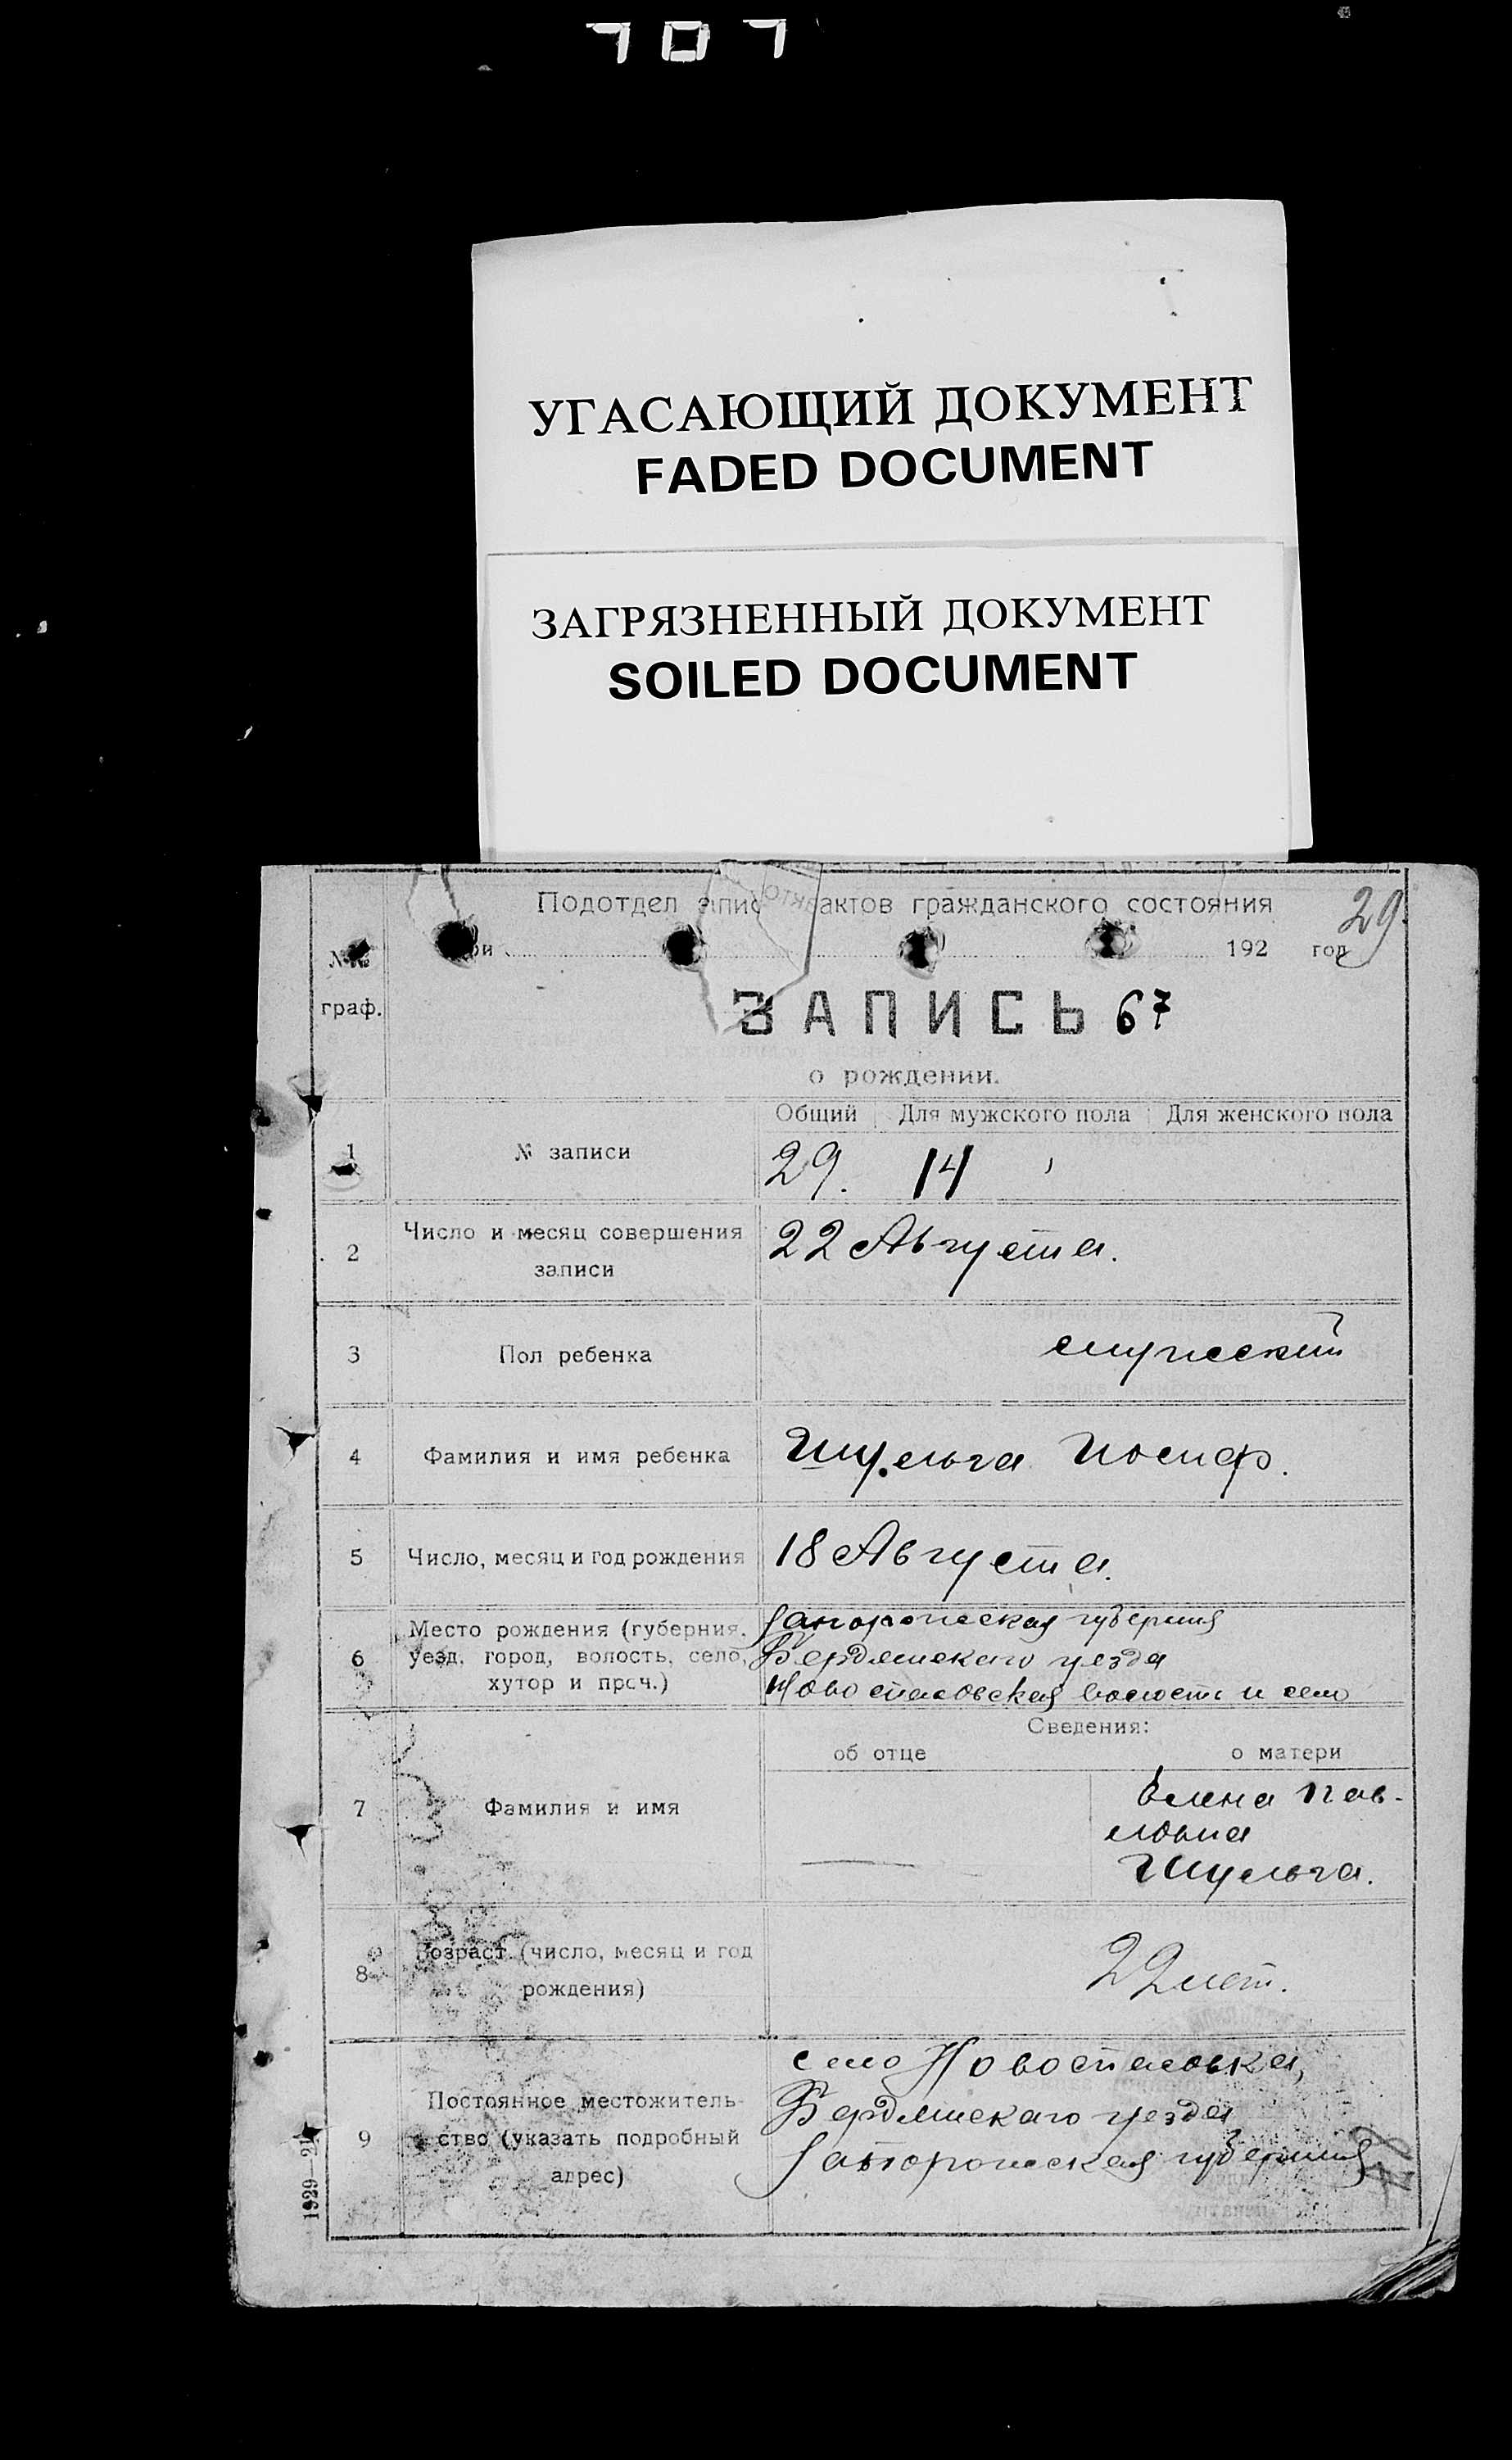 707
УГАСАЮЩИЙ ДОКУМЕНТ
FADED DOCUMENT
ЗАГРЯЗНЕННЫЙ ДОКУМЕНТ
SOILED DOCUMENT
Подотдел запис актов гражданского состояния
29.
при 192 год
№№ граф.
ЗАПИСЬ 67
о рождении.
Общий Для мужского пола Для женского пола
1 № записи 29. 14
2 Число и месяц совершения записи 22 Августа.
3 Пол ребенка мужеский
4 Фамилия и имя ребенка Шульга Иосиф.
5 Число, месяц и год рождения 18 Августа.
6 Место рождения (губерния, уезд, город, волость, село, хутор и проч.)
Запорожская губерния
Бердянскаго уезда
Новоспасовская волость и село
Сведения:
об отце о матери
7 Фамилия и имя
Елена Пав-
ловна
Шульга.
8 Возраст (число, месяц и год рождения) 22 лет.
9 Постоянное местожитель-
ство (указать подробный
адрес)
село Новоспасовка,
Бердянскаго уезда
Запорожская губерния
1929—21